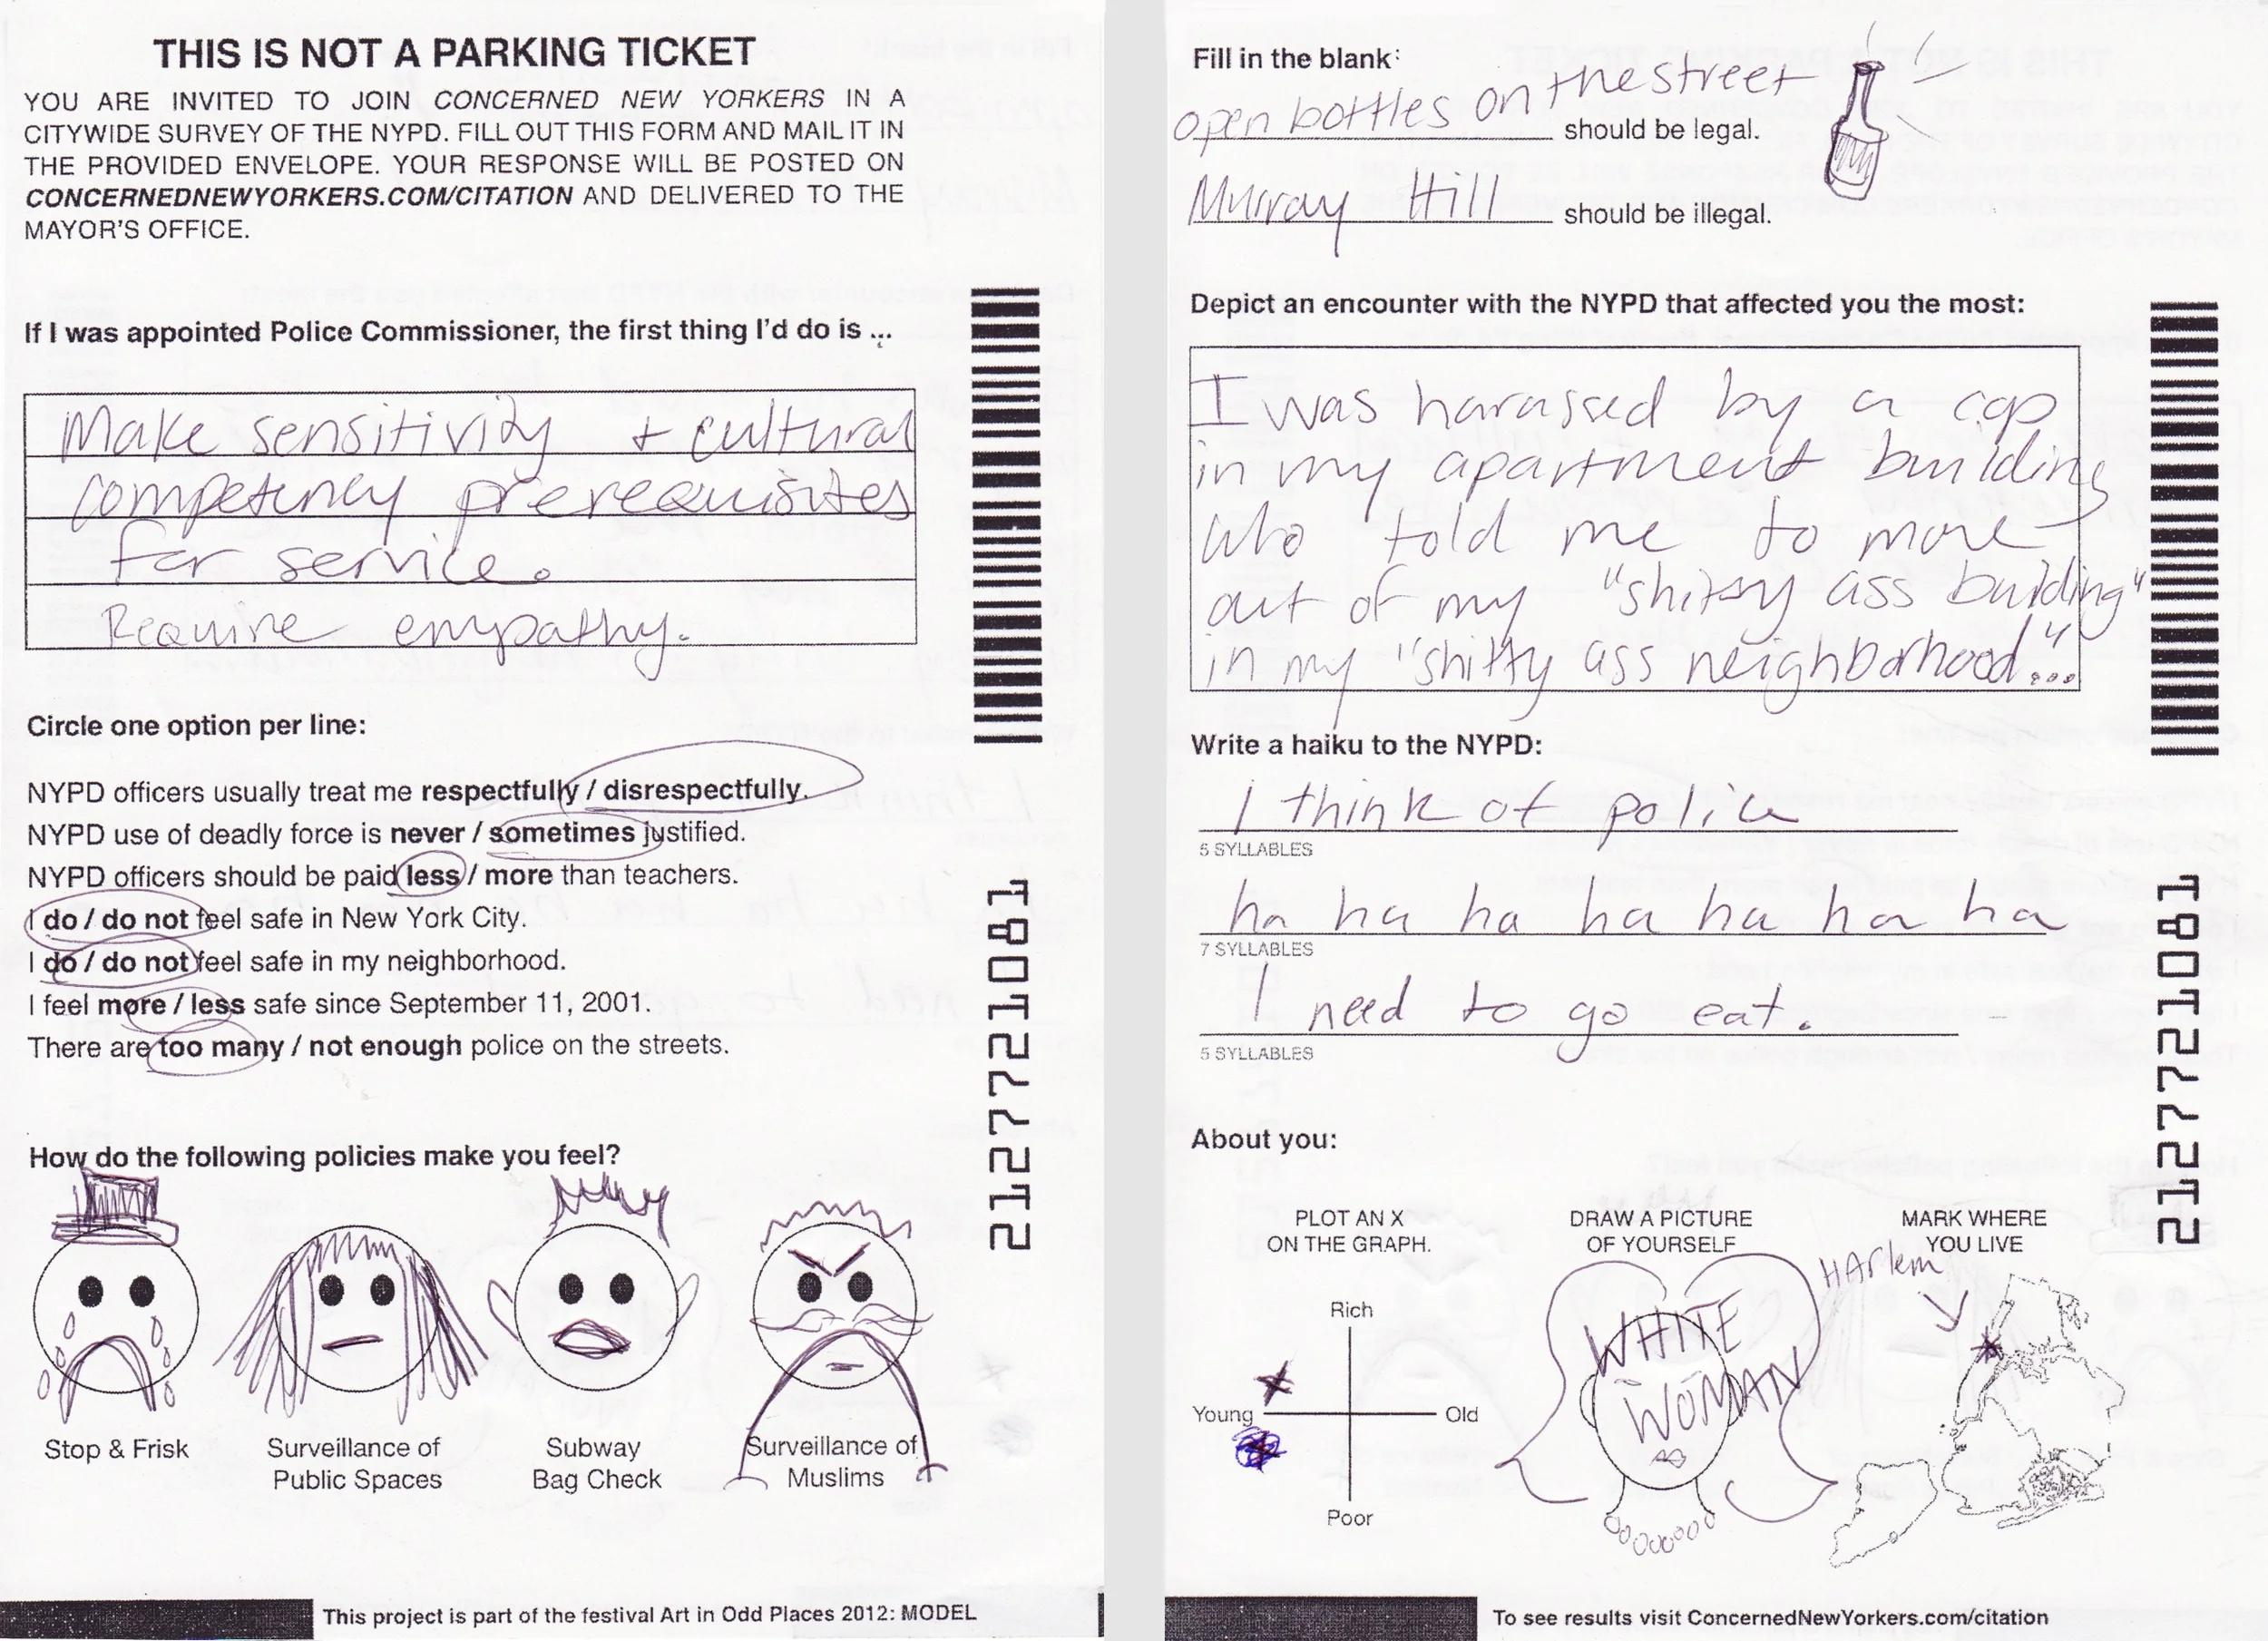 THIS IS NOT A PARKING TICKET
YOU ARE INVITED TO JOIN CONCERNED NEW YORKERS IN A
CITYWIDE SURVEY OF THE NYPD. FILL OUT THIS FORM AND MAIL IT IN
THE PROVIDED ENVELOPE. YOUR RESPONSE WILL BE POSTED ON
CONCERNEDNEWYORKERS.COM/CITATION AND DELIVERED TO THE
MAYOR'S OFFICE.
If I was appointed Police Commissioner, the first thing I'd do is ...
Make sensitivity + cultural
competency prerequisites
for service.
Require empathy.
Circle one option per line:
NYPD officers usually treat me respectfully / disrespectfully.
NYPD use of deadly force is never / sometimes justified.
NYPD officers should be paid less / more than teachers.
I do / do not feel safe in New York City.
I do / do not feel safe in my neighborhood.
I feel more / less safe since September 11, 2001.
There are too many / not enough police on the streets.
2127721081
How do the following policies make you feel?
Stop & Frisk
Surveillance of
Public Spaces
Subway
Bag Check
Surveillance of
Muslims
This project is part of the festival Art in Odd Places 2012: MODEL
Fill in the blank:
open bottles on the street should be legal.
Murray Hill should be illegal.
Depict an encounter with the NYPD that affected you the most:
I was harassed by a cop
in my apartment building
who told me to move
out of my "shitty ass building"
in my "shitty ass neighborhood..."
Write a haiku to the NYPD:
I think of police
5 SYLLABLES
ha ha ha ha ha ha ha
7 SYLLABLES
I need to go eat.
5 SYLLABLES
2127721081
About you:
PLOT AN X
ON THE GRAPH.
Rich
Young
Old
Poor
DRAW A PICTURE
OF YOURSELF
WHITE
WOMAN
MARK WHERE
YOU LIVE
HArlem
To see results visit ConcernedNewYorkers.com/citation